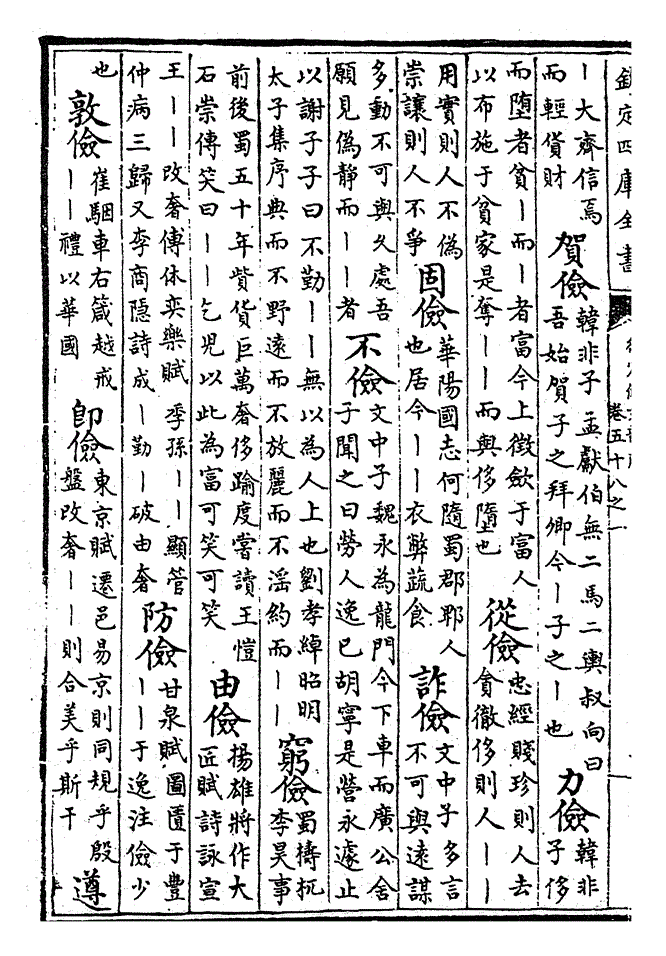 欽定四庫全書
卷五十八之一
｜大齊信焉
而輕貨財
賀儉
韓非子孟獻伯無二馬二輿叔向曰
吾始賀子之拜卿今｜子之｜也
力儉
韓非
子侈
而墮者貧｜而｜者富今上徵斂于富人
以布施于貧家是奪｜｜而與侈墮也
從儉
忠經賤珍則人去
貪徹侈則人｜｜
用實則人不偽
崇讓則人不爭
固儉
華陽國志何隨蜀郡郫人
也居今｜｜衣弊蔬食
詐儉
文中子多言
不可與遠謀
多動不可與久處吾
願見偽靜而｜｜者
不儉
文中子魏永為龍門令下車而廣公舍
子聞之曰勞人逸已胡寧是營永遽止
以謝子子曰不勤｜｜無以為人上也劉孝綽昭明
太子集序典而不野遠而不放麗而不滛約而｜｜
窮儉
蜀檮杌
李昊事
前後蜀五十年貲貨巨萬奢侈踰度嘗讀王愷
石崇傳笑曰｜｜乞兒以此為富可笑可笑
由儉
揚雄將作大
匠賦詩詠宣
王｜｜改奢傅休奕樂賦季孫｜｜顯管
仲病三歸又李商隱詩成｜勤｜破由奢
防儉
甘泉賦圖匱于豐
｜｜于逸注儉少
也
敦儉
崔駰車右箴越戒
｜｜禮以華國
卽儉
東京賦遷邑易京則同規乎殷
盤改奢｜｜則合美乎斯干
遵